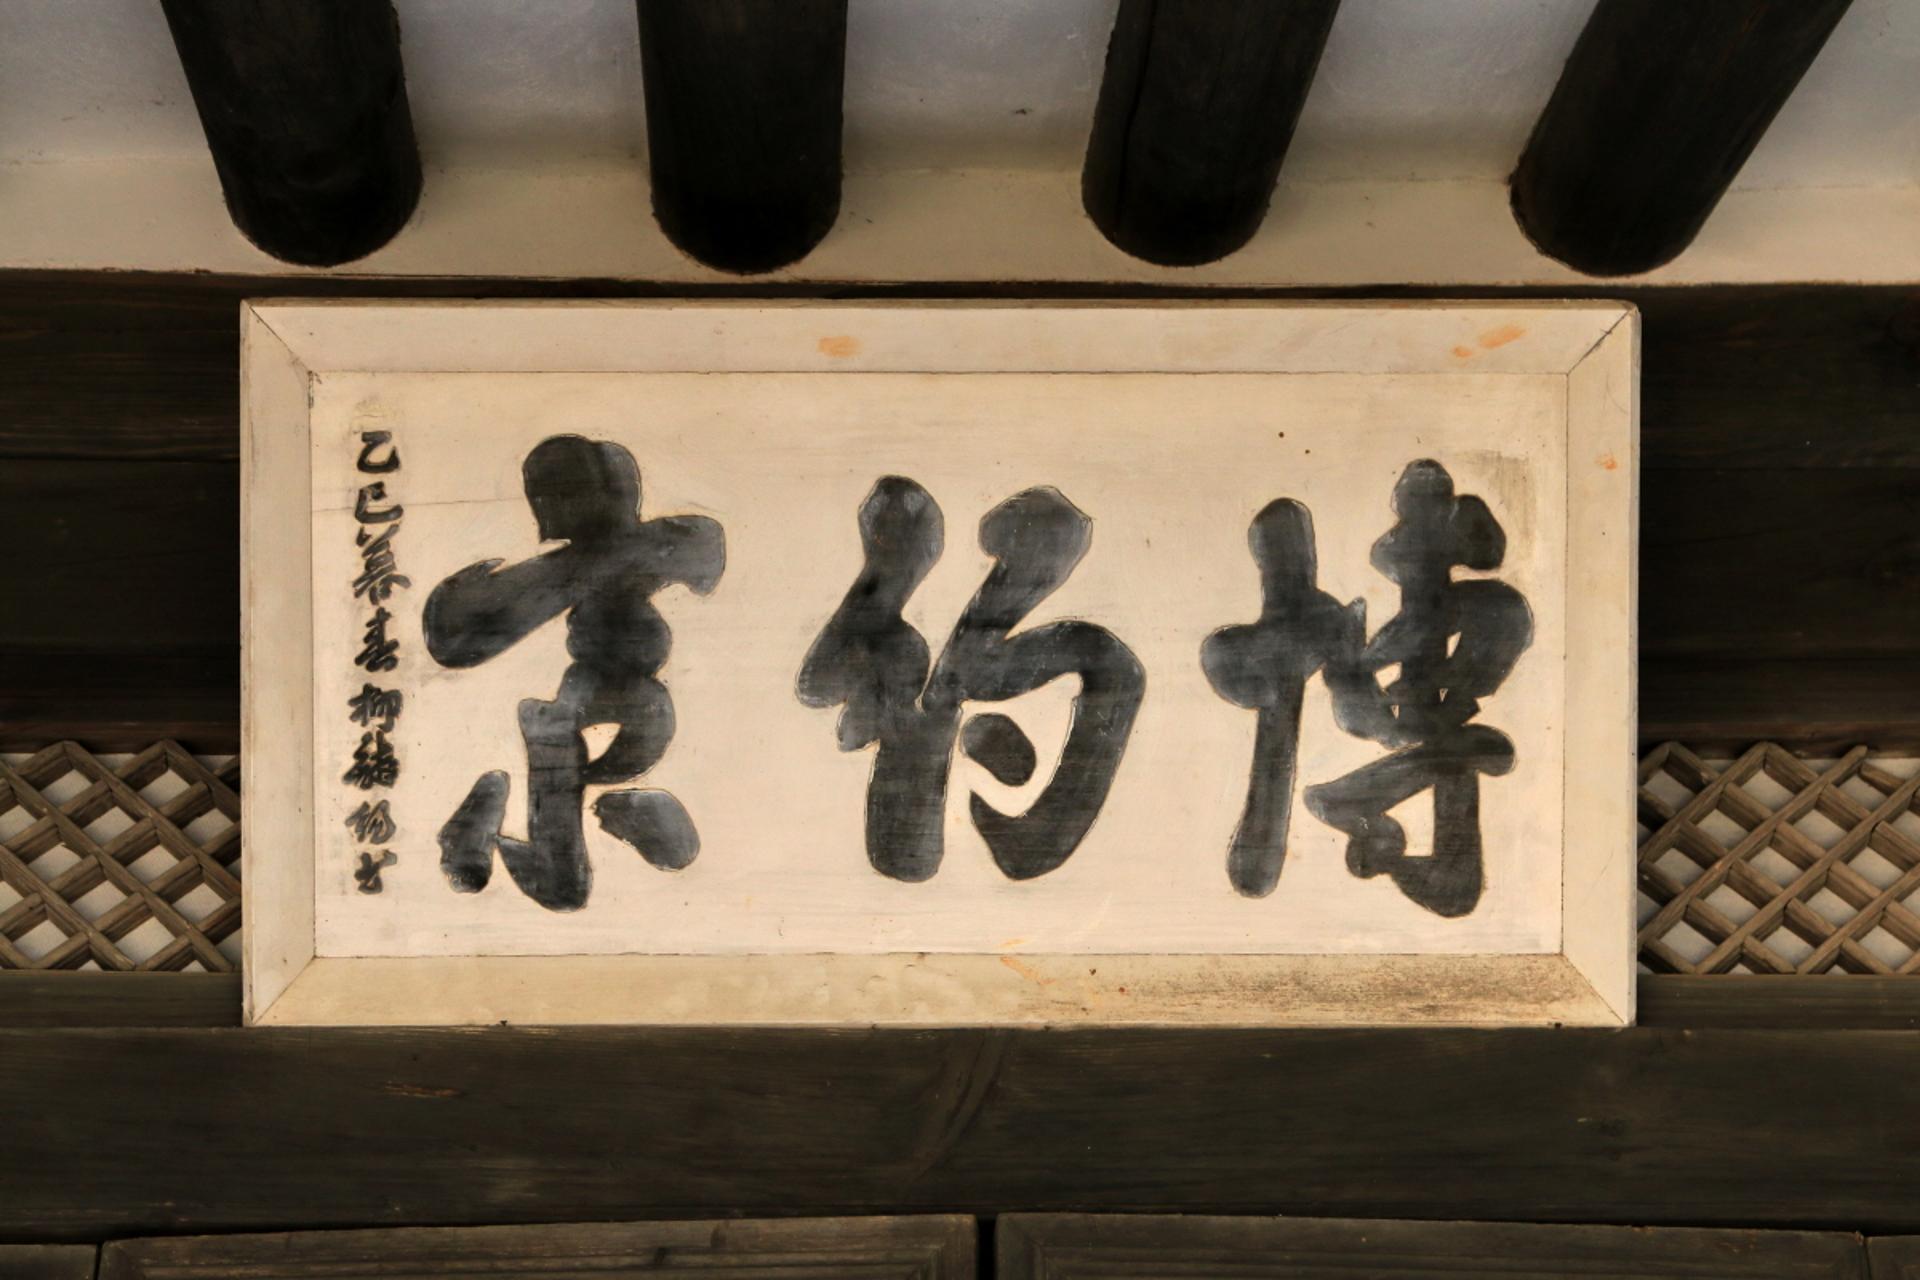 博約齋
乙巳暮春柳書